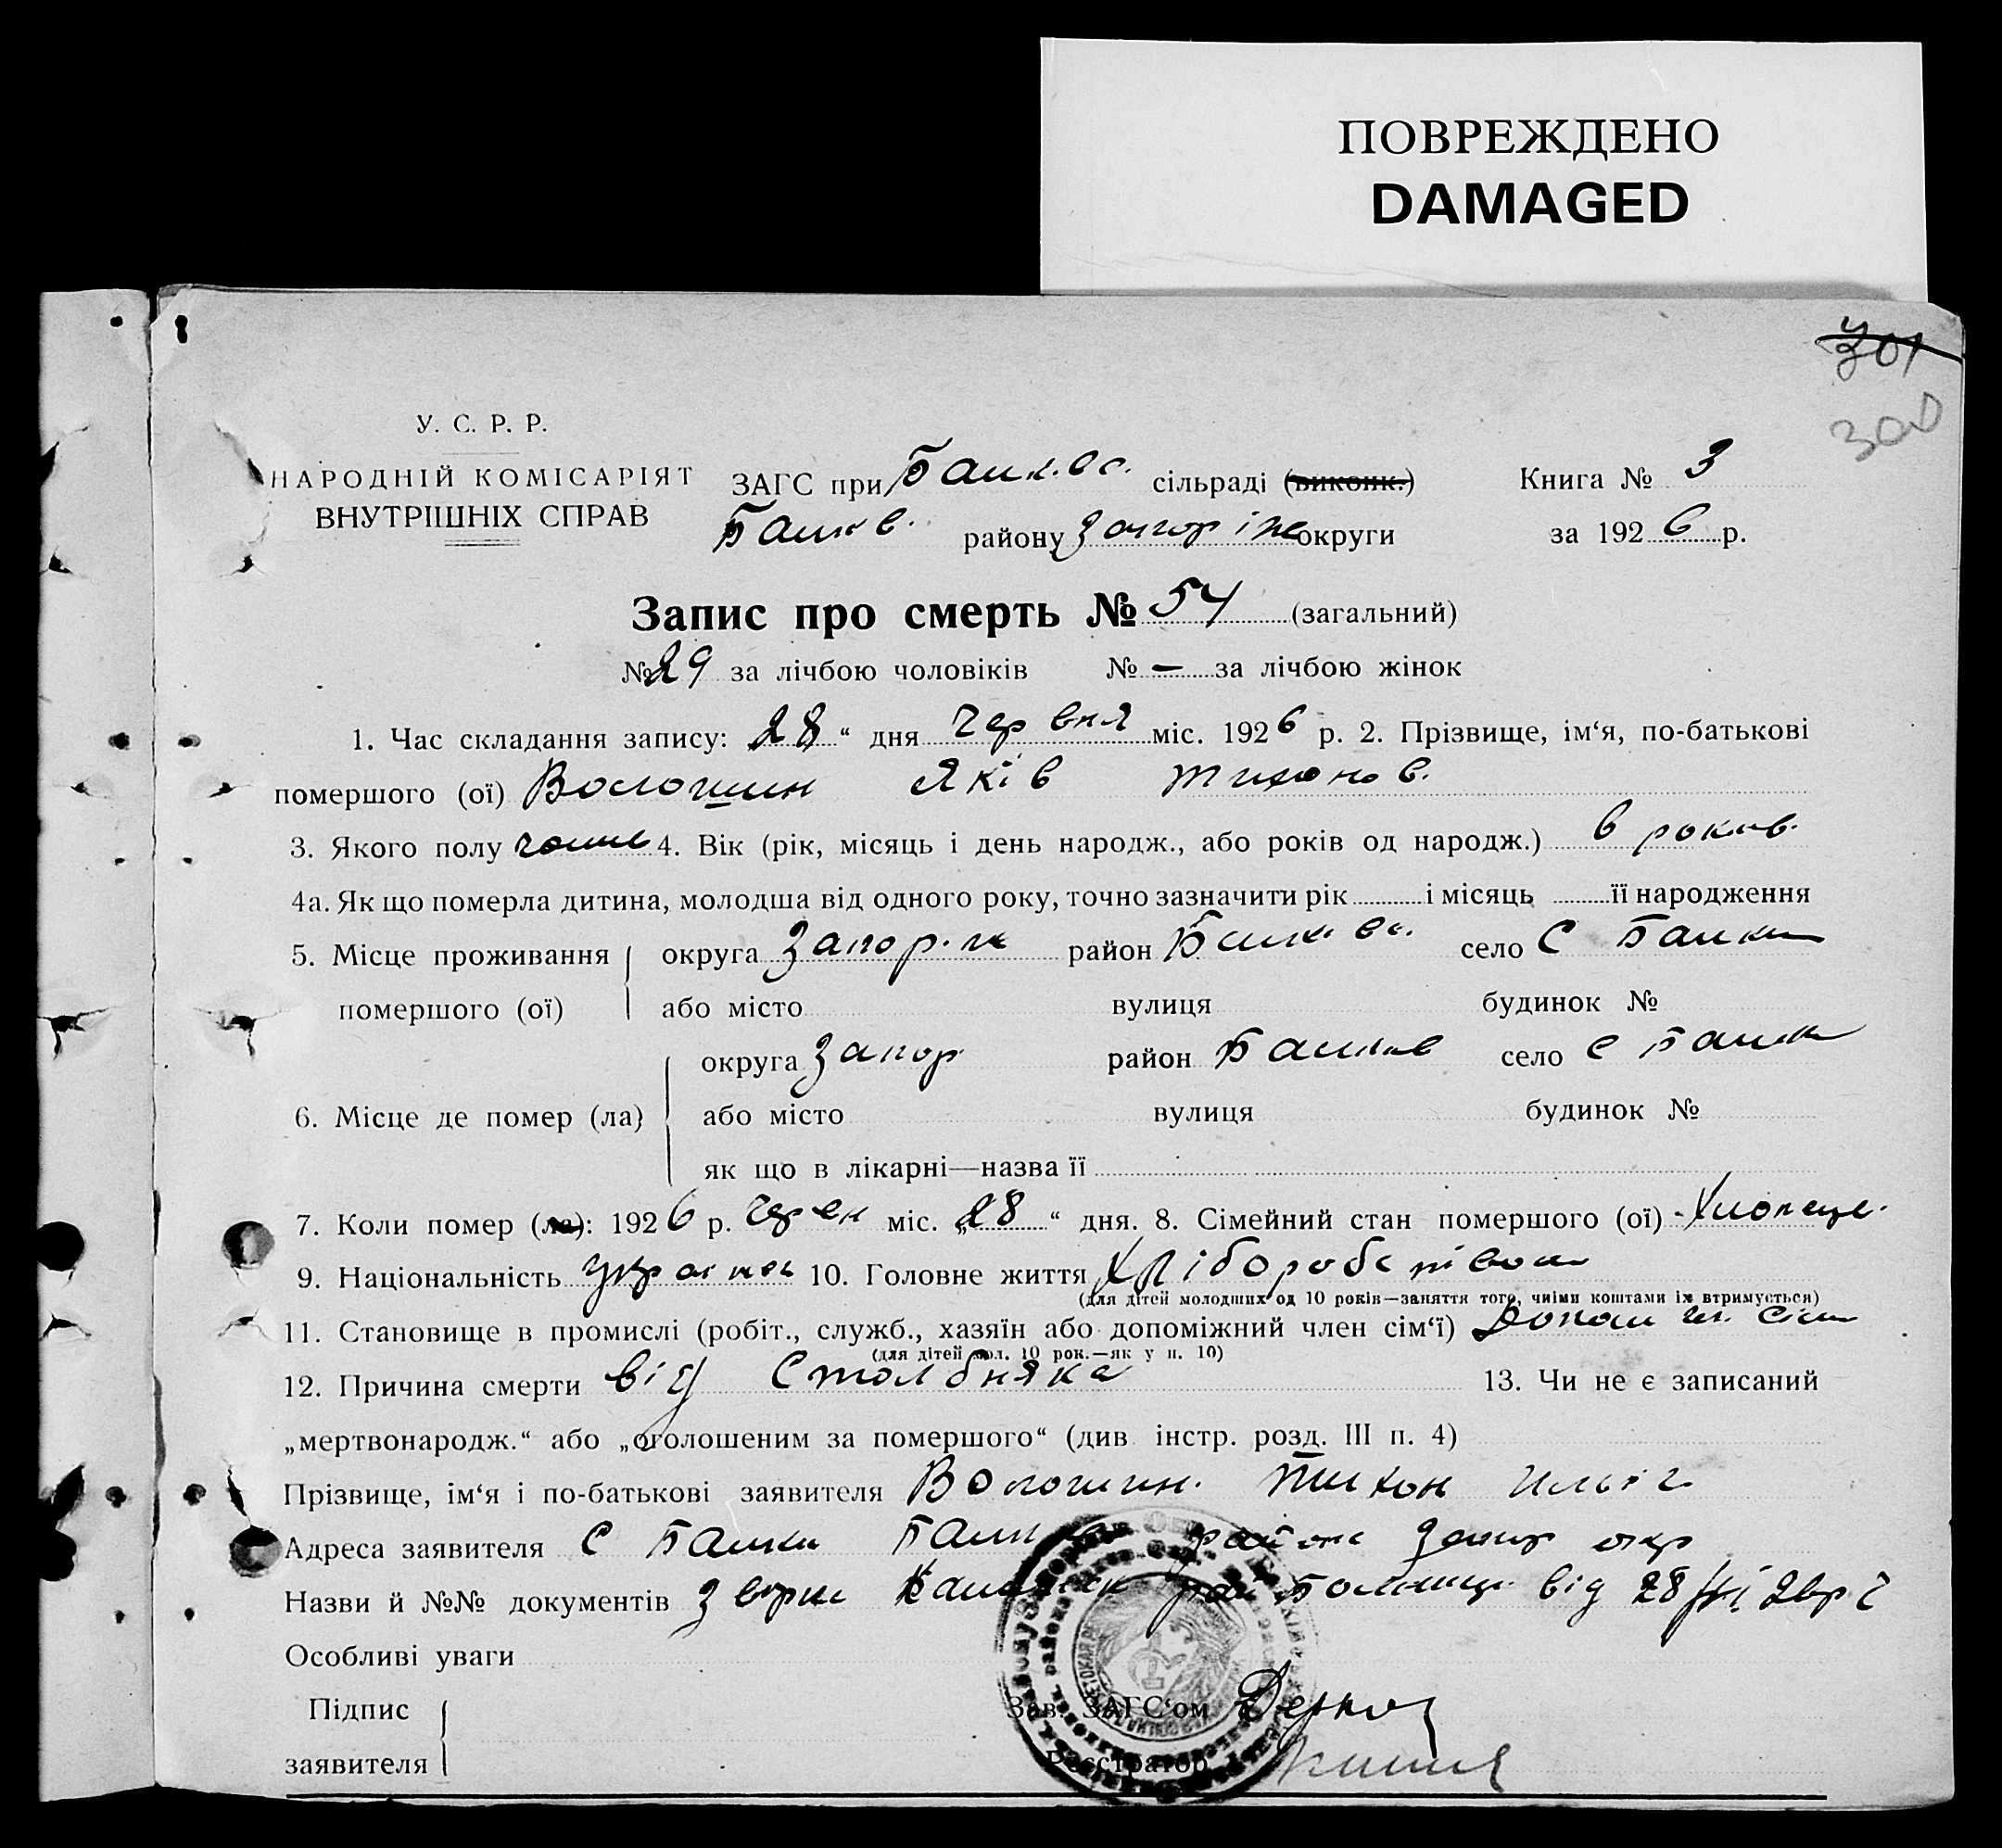 ПОВРЕЖДЕНО
DAMAGED
301
300
У. С. Р. Р.
НАРОДНІЙ КОМІСАРІЯТ
ВНУТРІШНІХ СПРАВ
ЗАГС при сільраді (виконк.)
району Запоріж округи
Книга № 3
за 1926 р.
Запис про смерть № 54 (загальний)
№ 29 за лічбою чоловіків № — за лічбою жінок
1. Час складання запису: 28 “ дня Червня міс. 1926 р. 2. Прізвище, ім‘я, по-батькові
помершого (ої) Волошин Яків Тихонов.
3. Якого полу 4. Вік (рік, місяць і день народж., або років од народж.) 6 років.
4а. Як що померла дитина, молодша від одного року, точно зазначити рік і місяць її народження
5. Місце проживання округа Запор. район село С
помершого (ої) або місто вулиця будинок №
округа Запор район село С
6. Місце де помер (ла) або місто вулиця будинок №
як що в лікарні—назва її
7. Коли помер (ла): 1926 р. міс. „28“ дня. 8. Сімейний стан помершого (ої)
9. Національність 10. Головне життя Хліборобством
(для дітей молодших од 10 років—заняття того, чиїми коштами їх втримується)
11. Становище в промислі (робіт., служб., хазяїн або допоміжний член сім‘ї)
(для дітей мол. 10 рок.—як у п. 10)
12. Причина смерти від Столбняка 13. Чи не є записаний
„мертвонародж.“ або „оголошеним за помершого“ (див. інстр. розд. III п. 4)
Прізвище, ім‘я і по-батькові заявителя Волошин. Тихон
Адреса заявителя С района Запор окр
Назви й №№ документів від 28/VI
Особливі уваги
Підпис
заявителя
Зав. ЗАГС‘ом
Реєстратор